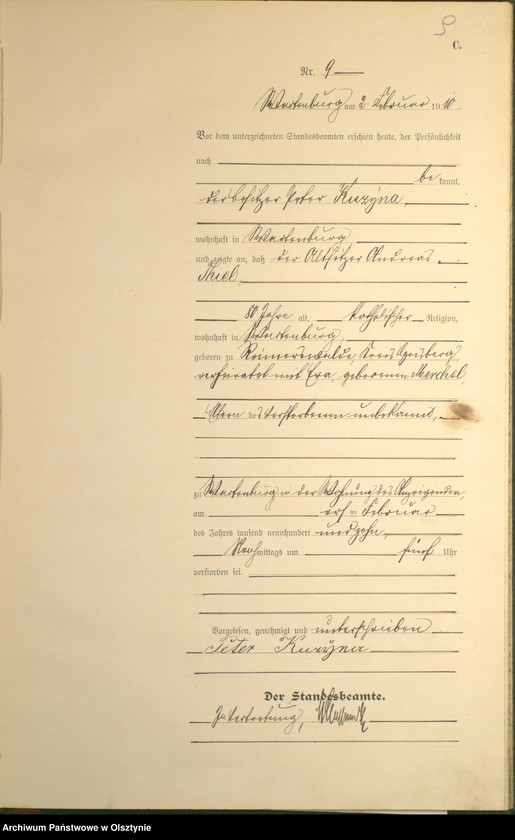 9
C.
Nr. 9
Wartenburg am 2. Februar 1910
Vor dem unterzeichneten Standesbeamten erschien heute, der Persönlichkeit
nach
be kannt,
der Besitzer Peter Kuzyna,
wohnhaft in Wartenburg,
und zeigte an, daß der Altsitzer Andreas
Thiel,
80 Jahre alt, katholischer Religion,
wohnhaft in Wartenburg,
geboren zu Reimerswalde, Kreis
verheiratet mit Eva, geborenen
Eltern des Verstorbenen unbekannt,
zu Wartenburg in der Wohnung des Anzeigenden,
am ersten Februar
des Jahres tausend neunhundert undzehn,
Nachmittags um fünf Uhr
verstorben sei.
Vorgelesen, genehmigt und unterschrieben
Peter Kuzyna
Der Standesbeamte.
In Vertretung,
Archiwum Państwowe w Olsztynie